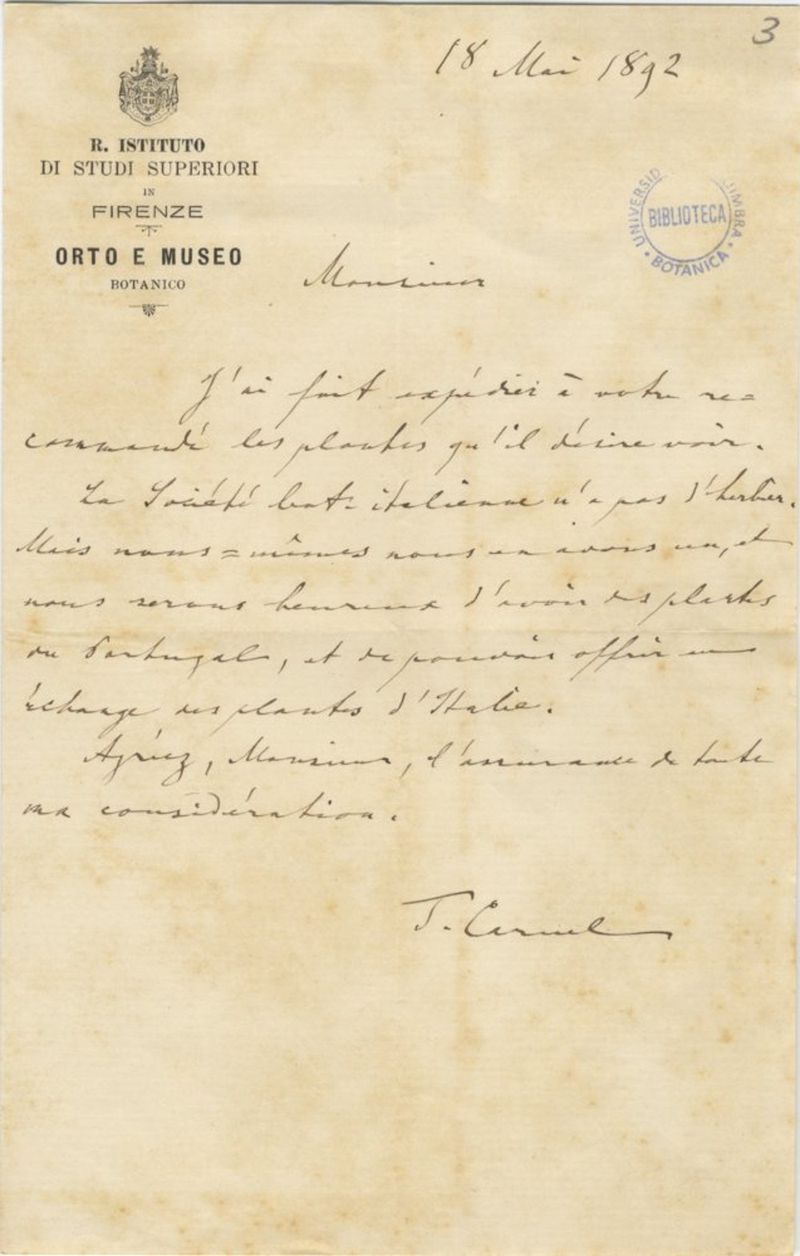 3
18 Mai 1892
R. ISTITUTO
DI STUDI SUPERIORI
IN
FIRENZE
ORTO E MUSEO
BOTANICO
UNIVERSID
IMBRA
BIBLIOTECA
BOTANICA
Monsieur
J'ai fait expédier à votre re=
commandé les plantes qu'il désire voir.
La Société bot. italienne n'a pas d'herbier.
Mais nous=mêmes nous en avons un, et
nous serons heureux d'avoir des plantes
du Portugal, et de pouvoir offrir en
échange des plantes d'Italie.
Agréez, Monsieur, l'assurance de toute
ma considération.
T. Caruel